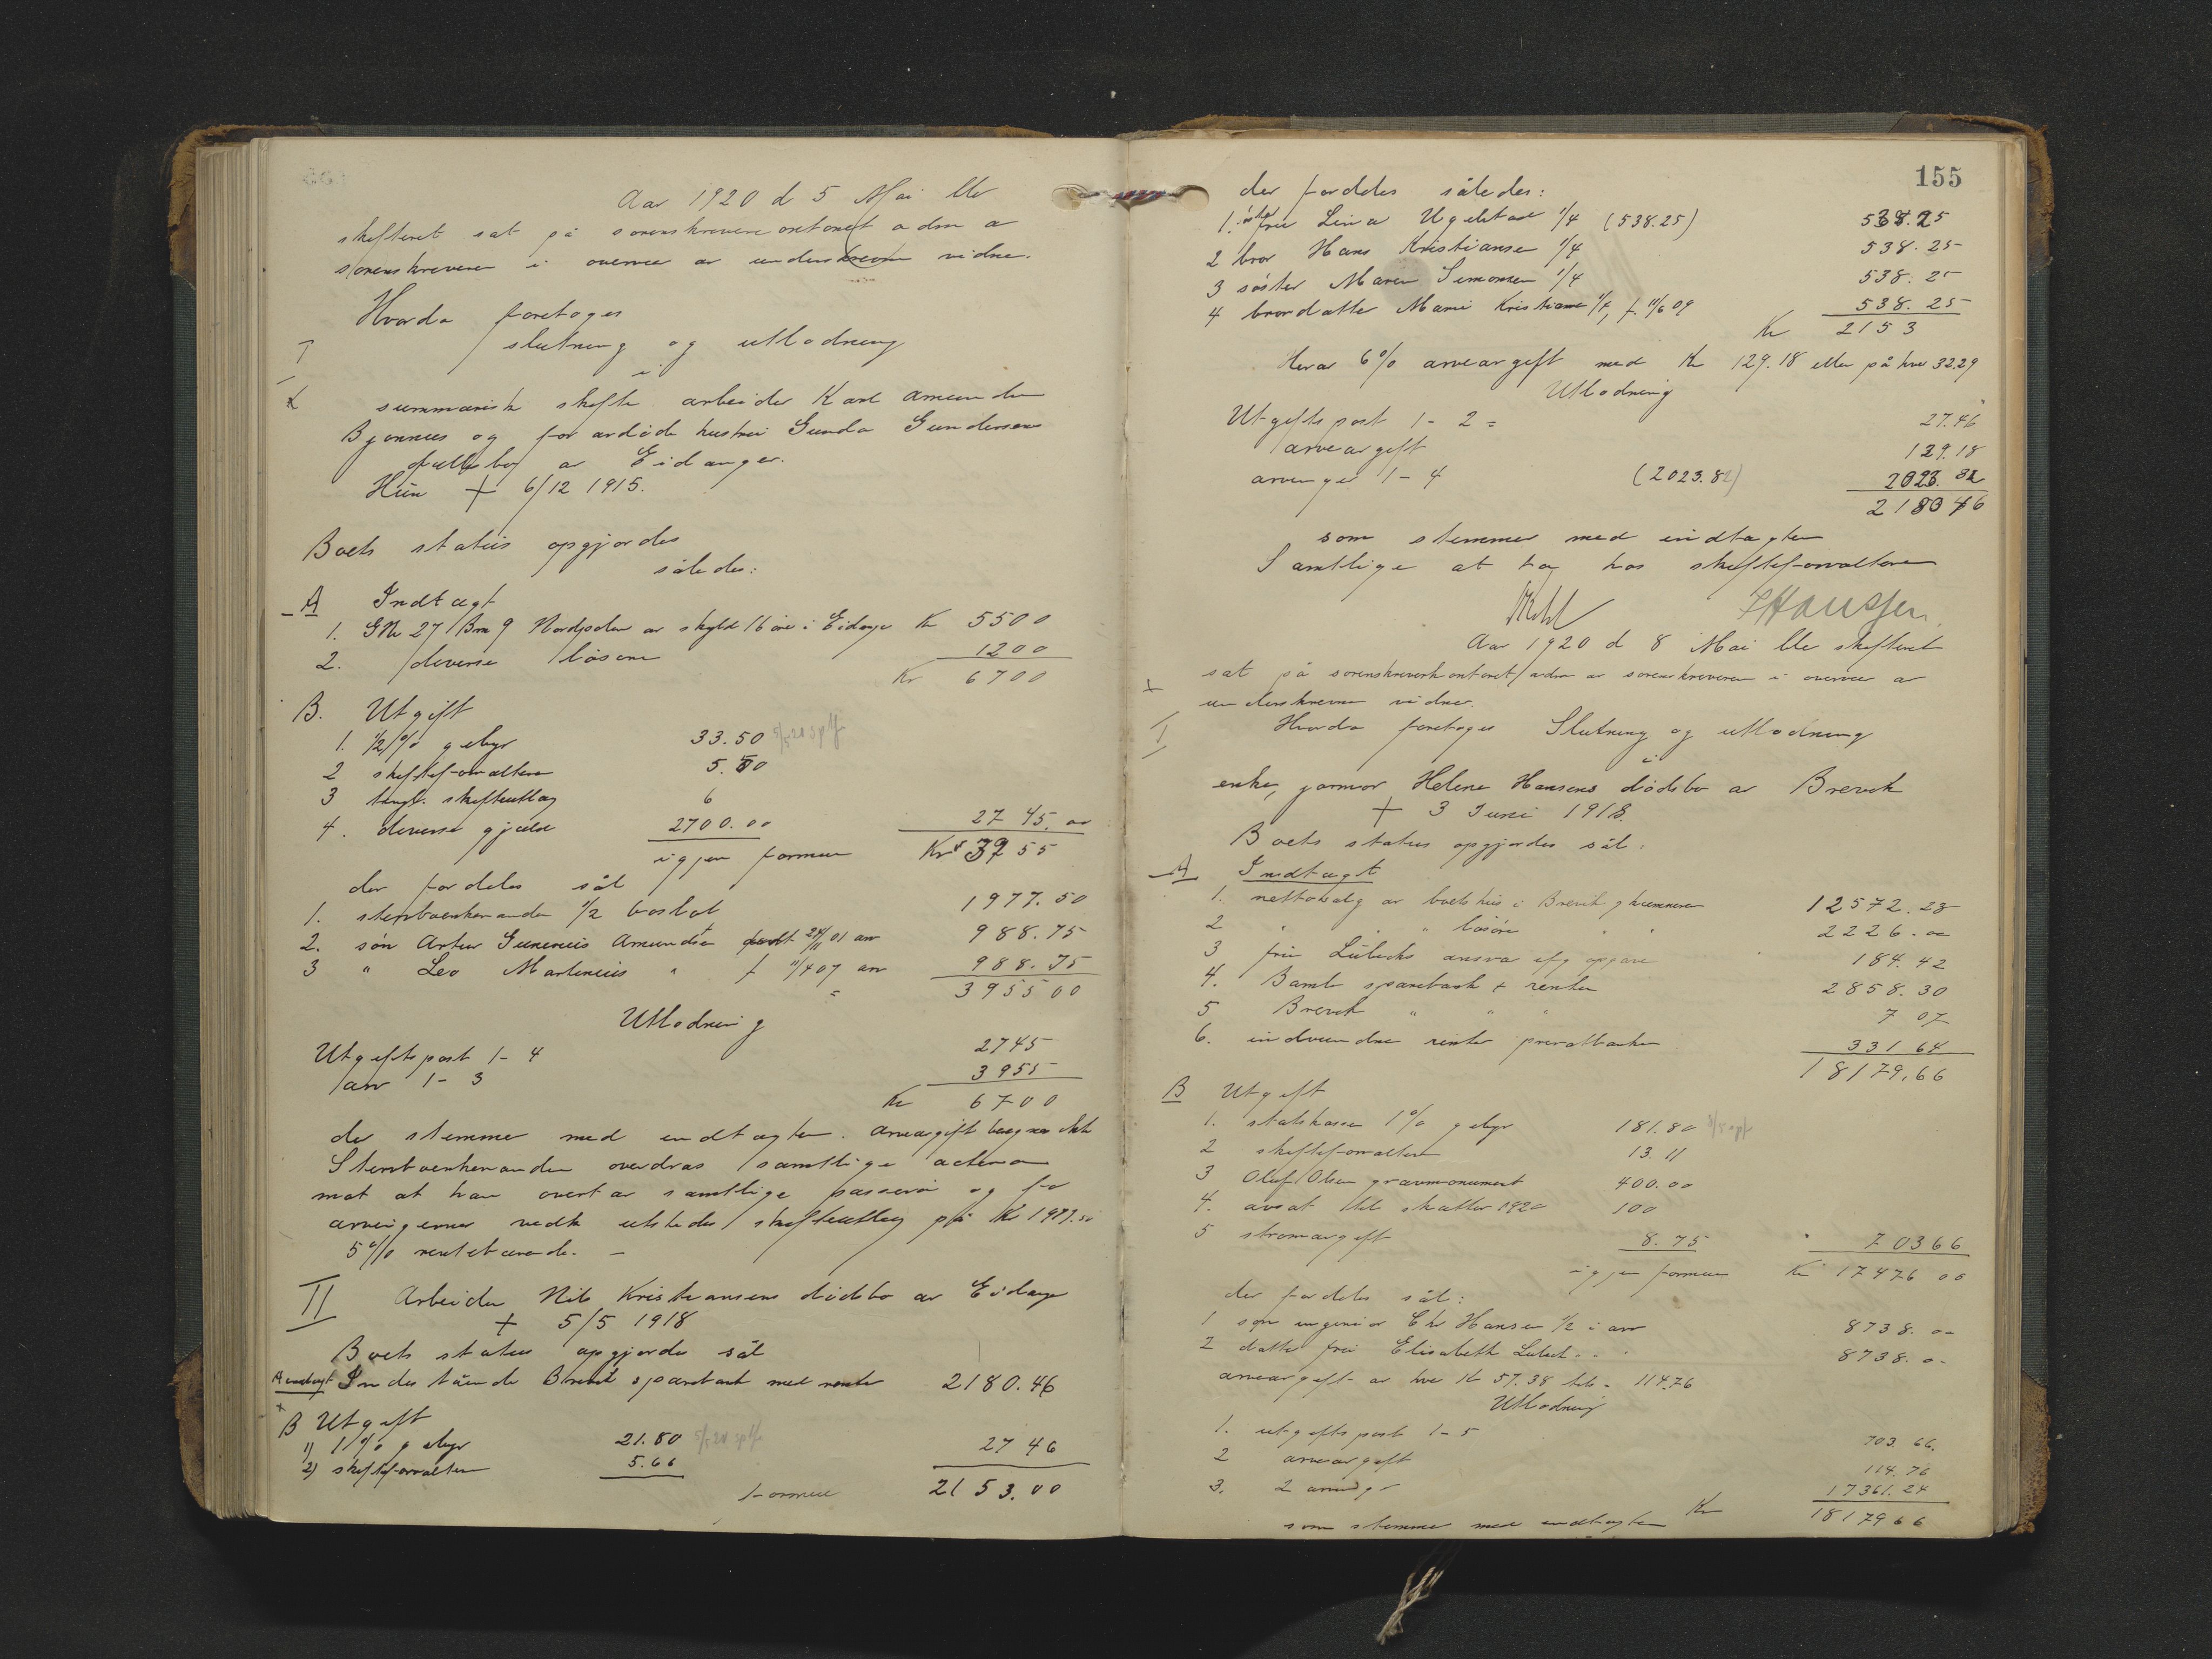 Aar 1920 d 5 Mai ble
skifteret sat på sorenskriverkontoret adm a
sorenskriveren i overvær av underskrevne vidne.
Hvorda foretoges
slutning og utlodning
I
i
summarisk skifte arbeider Karl Amundsen
Bjønnes og før avdøde hustru Gunda Gundersens
fællesbo av Eidanger.
Hun + 6/12 1915.
Boets status opgjordes
således:
A Indtægt
1. GNr 27 Bnr 9 Nordpolen av skyld 16 øre i Eidanger Kr 5500
2. diverse løsøre 1200
Kr 6700
B. Utgift
1. 1/2 % gebyr 33.50
2 skifteforvalteren 5.50
3 tingl. skifteutlæg 6
4. diverse gjæld 2700.00 2745.00
igjen formue Kr 3955
der fordeles sål
1. stervboenkemanden 1/2 boslod 1977.50
2. søn Artur Gunenius Amundsen født 24/11 01 arv 988.75
3 " Leo Martinius " f 11/4 07 arv 988.75
= 3955 00
Utlodning
Utgiftspost 1-4 2745
arv 1-3 3955
Kr 6700
der stemmer med indtægten. Arveavgift beregnes ikke
Stervboenkemanden overdras samtlige activa
mot at han overtar samtlige passiva og for
arvingerne vedk utstedes skifteutlæg på Kr 1977.50
5% rentebærende. —
II Arbeider Nils Kristiansens dødsbo av Eidanger
+ 5/5 1918
Boets status opgjordes sål
A indtægt Indestående Brevik sparebank med renter 2180.46
B Utgift
1) 1% gebyr 21.80
2) skifteforvalteren 5.66 27 46
formue 2153.00
155
der fordeles således:
1. søster fru Lina Ugelstad 1/4 (538.25) 538.25
2 bror Hans Kristiansen 1/4 538.25
3 søster Maren Simonsen 1/4 538.25
4 brordatter Marie Kristiansen 1/4, f. 11/6 09 538.25
Kr 2153
Herav 6% arveavgift med Kr 129.18 eller på hver 32.29
Utlodning
Utgiftspost 1-2 = 27.46
arveavgift 129.18
arvinger 1-4 (2023.82) 2023.82
2180 46
som stemmer med indtægten
Samtlige at ta hos skifteforvalteren
Hansen
Aar 1920 d 8 Mai ble skifteret
sat på sorenskriverkontoret adm av sorenskriveren i overvær av
underskrevne vidner.
I Hvorda foretoges Slutning og utlodning
i
enke, jormor Helene Hansens dødsbo av Brevik
+ 3 Juni 1918.
Boets status opgjordes sål:
A Indtægt
1. nettosalg av boets hus i Brevik 12572.23
2 " " " løsøre " " 2226.00
3 fru Lübecks ansvar efg opgave 184.42
4. Bamle sparebank + renter 2858.30
5 Brevik " " " 7 07
6. indvundne renter privatbanken 331 64
18179,66
B Utgift
1. statskassen 1% gebyr 181.80
2 skifteforvalteren 13.11
3 Oluf Olsen gravmonument 400.00
4. avsat til skatter 1920 100
5 stromavgift 8.75 703 66
igjen formue Kr 17476 00
der fordeles sål:
1 søn ingeniør Chr Hansen 1/2 i arv 8738.00
2 datter fru Elisabeth Lübeck " " 8738.00
arveavgift av hver Kr 57.38 tils = 114.76
Utlodning
1. utgiftspost 1-5 703.66.
2 arveavgift 114.76
3. 2 arvinger 17361.24
som stemmer med indtægten Kr 18179 66